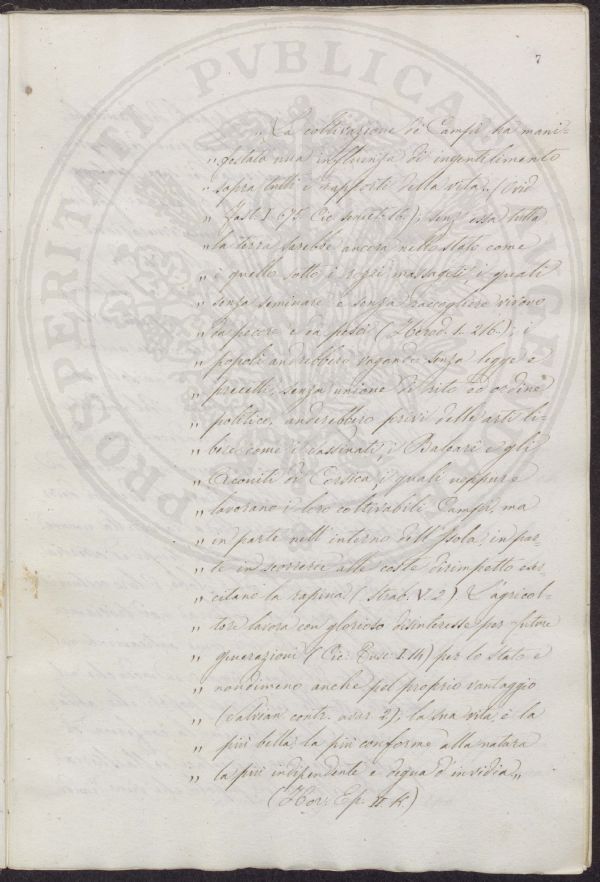 7
„ La coltivazione de' Campi ha mani-
„ festato una influenza di ingentilimento
„ sopra tutti i rapporti della vita. (Ovid
„ Fast. I. 675. Cic 16.); senz' essa tutta
„ la terra sarebbe ancora nello stato come
„ è quello sotto i rozzi massageti, i quali
„ senza seminare e senza raccogliere vivono
„ da pecore e da pesci (Herod. 1. 216.); i
„ popoli andrebbero vagando senza legge e
„ precetti, senza unione di rito od ordine
„ politico, anderebbero privi delle arti li-
„ bere come i i Baleari e gli
„ di Corsica, i quali neppure
„ lavorano i loro coltivabili Campi, ma
„ in parte nell' interno dell' Isola, in par-
„ te in scorrerie alle coste dirimpetto eser-
„ citano la rapina (Strab. V. 2) L'agricol-
„ tore lavora con glorioso disinteresse per future
„ generazioni (Cic. Tusc. I. 14) per lo stato e
„ nondimeno anche pel proprio vantaggio
„ (Salvian contr. avar 2); la sua vita, è la
„ più bella, la più conforme alla natura
„ la più indipendente e degna d' invidia „
(Hor. Ep. II. K.)
PROSPERITATI PVBLICAE AVGENDAE